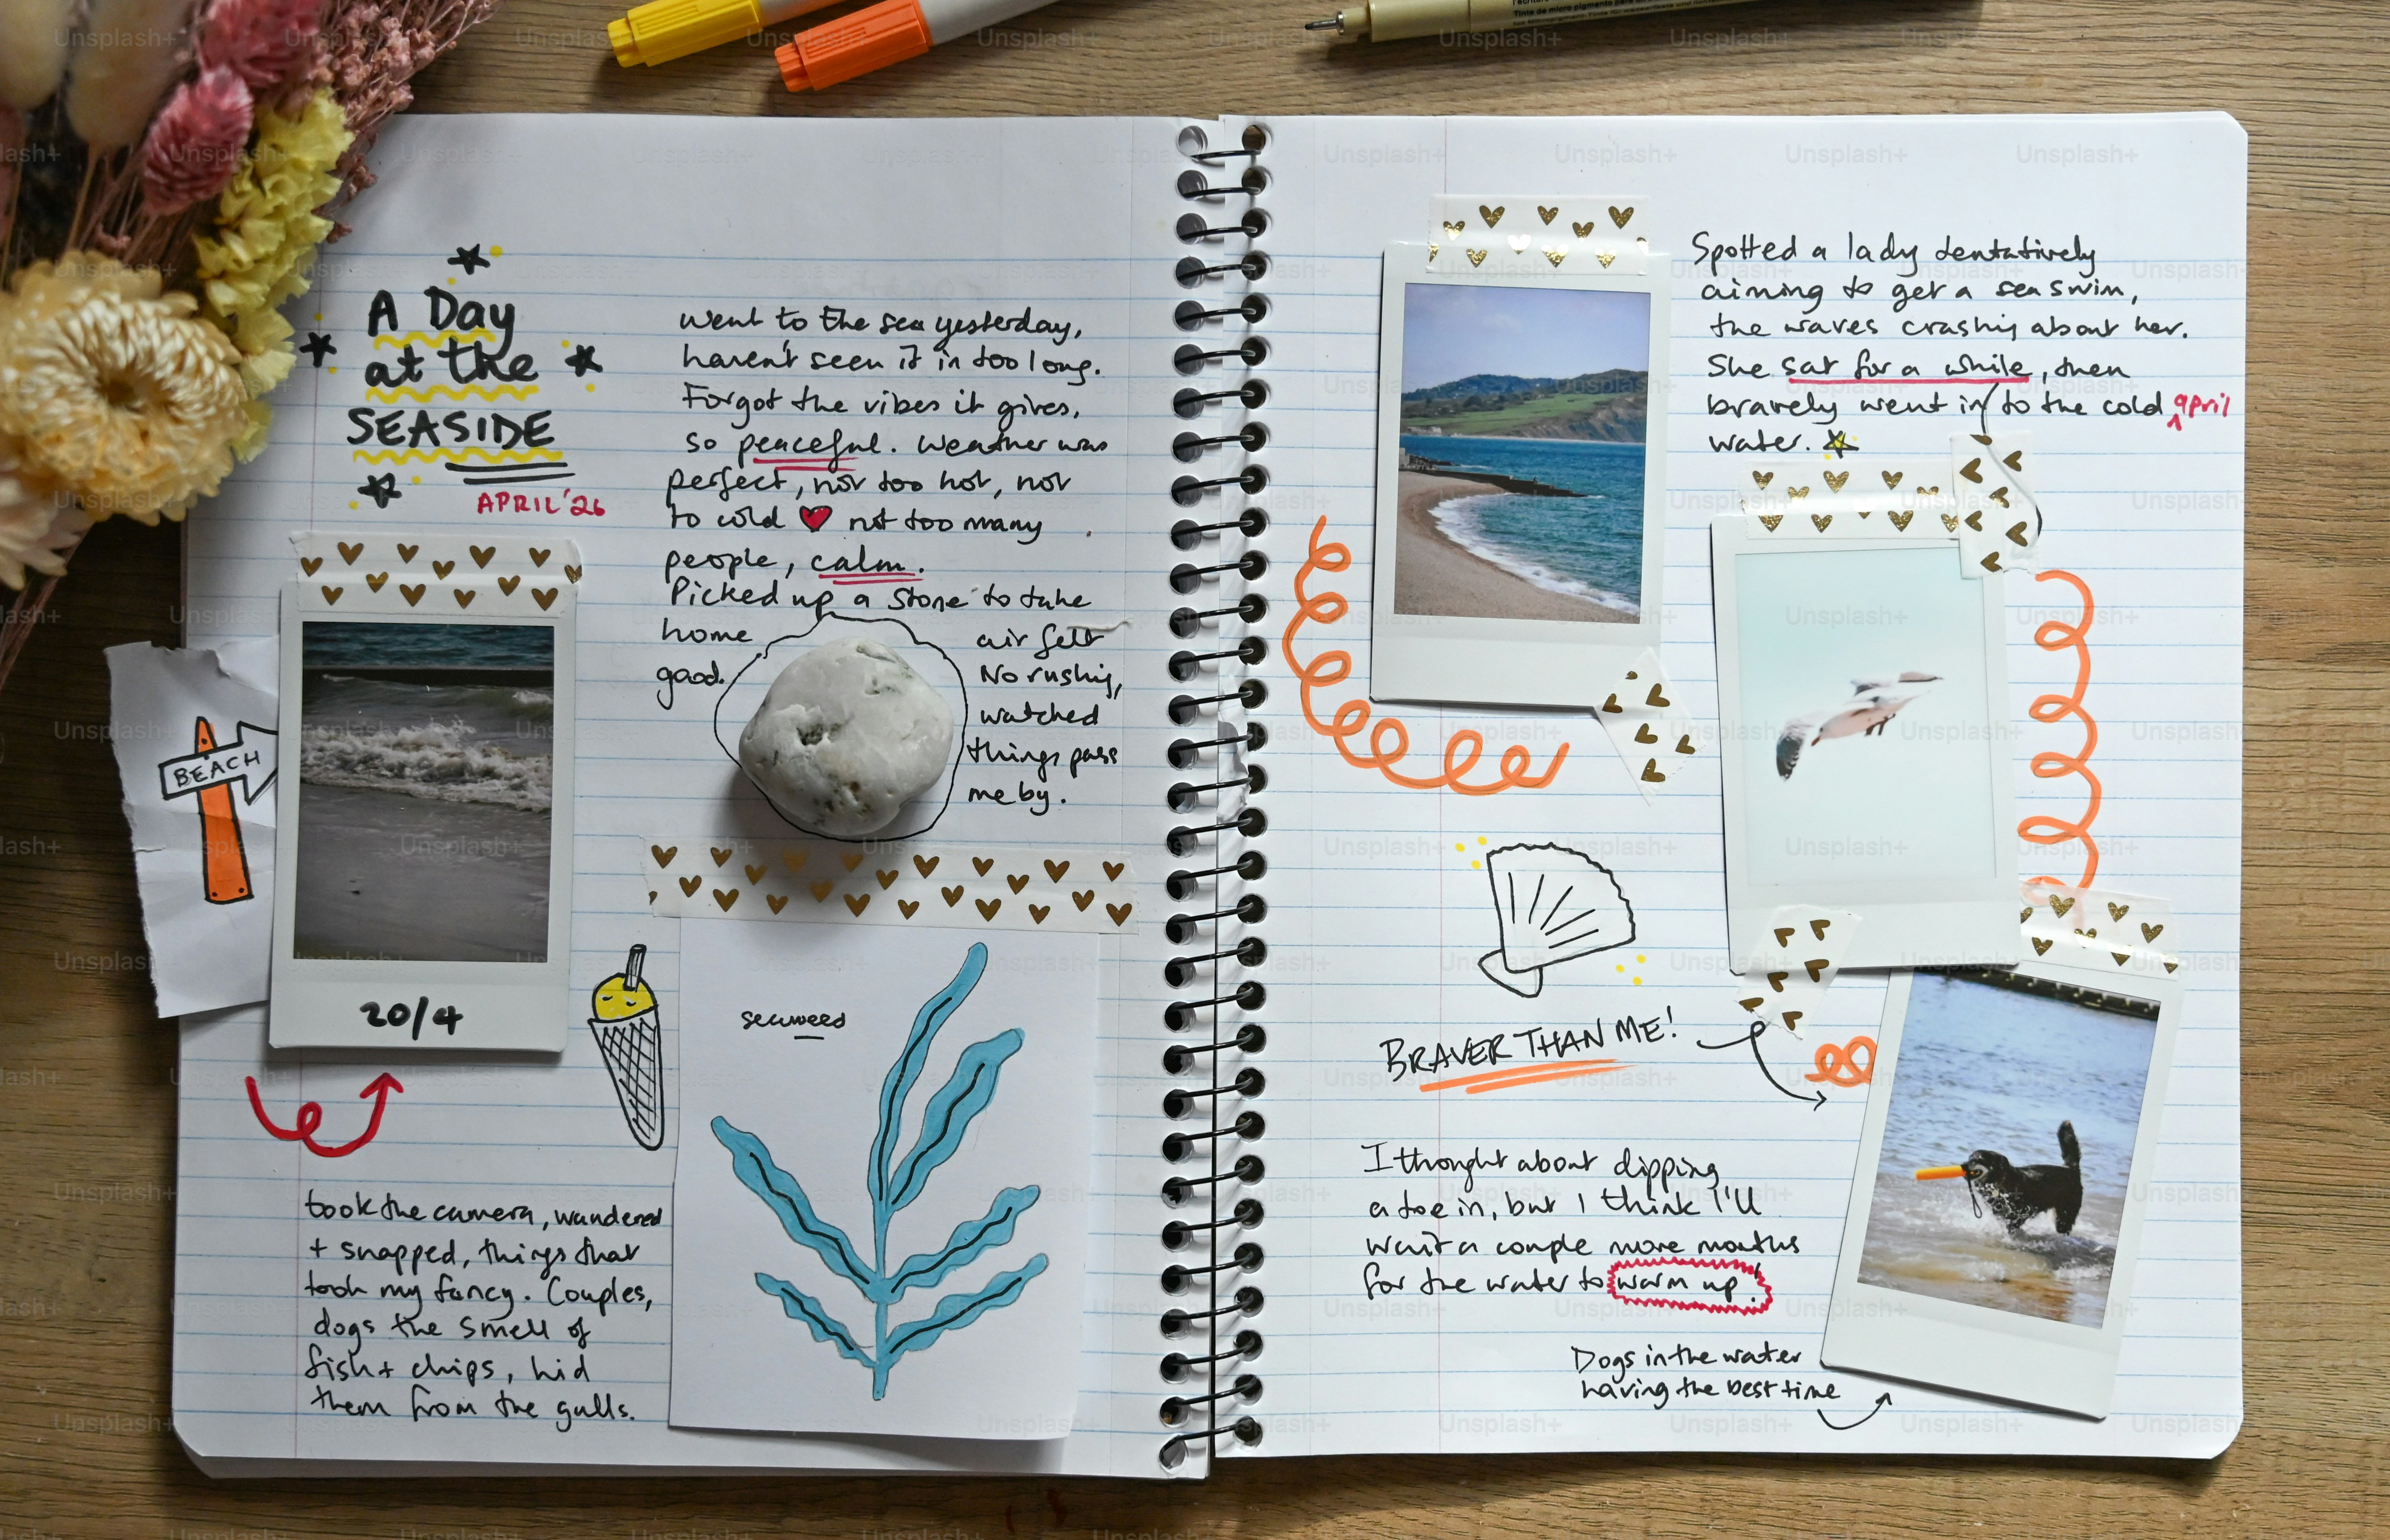 A Day
at the
SEASIDE
APRIL '26
went to the sea yesterday,
haven't seen it in too long.
Forgot the vibes it gives,
so peaceful. Weather was
perfect, not too hot, not
to cold ♥ not too many
people, calm.
Picked up a stone to take
home
good.
air felt
No rushing,
watched
things pass
me by.
BEACH
20/4
seaweed
took the camera, wandered
+ snapped, things that
took my fancy. Couples,
dogs the smell of
fish + chips, hid
them from the gulls.
Spotted a lady tentatively
aiming to get a sea swim,
the waves crashing about her.
She sat for a while, then
bravely went in to the cold april
water.
BRAVER THAN ME!
I thought about dipping
a toe in, but I think I'll
wait a couple more months
for the water to warm up!
Dogs in the water
having the best time
Unsplash+